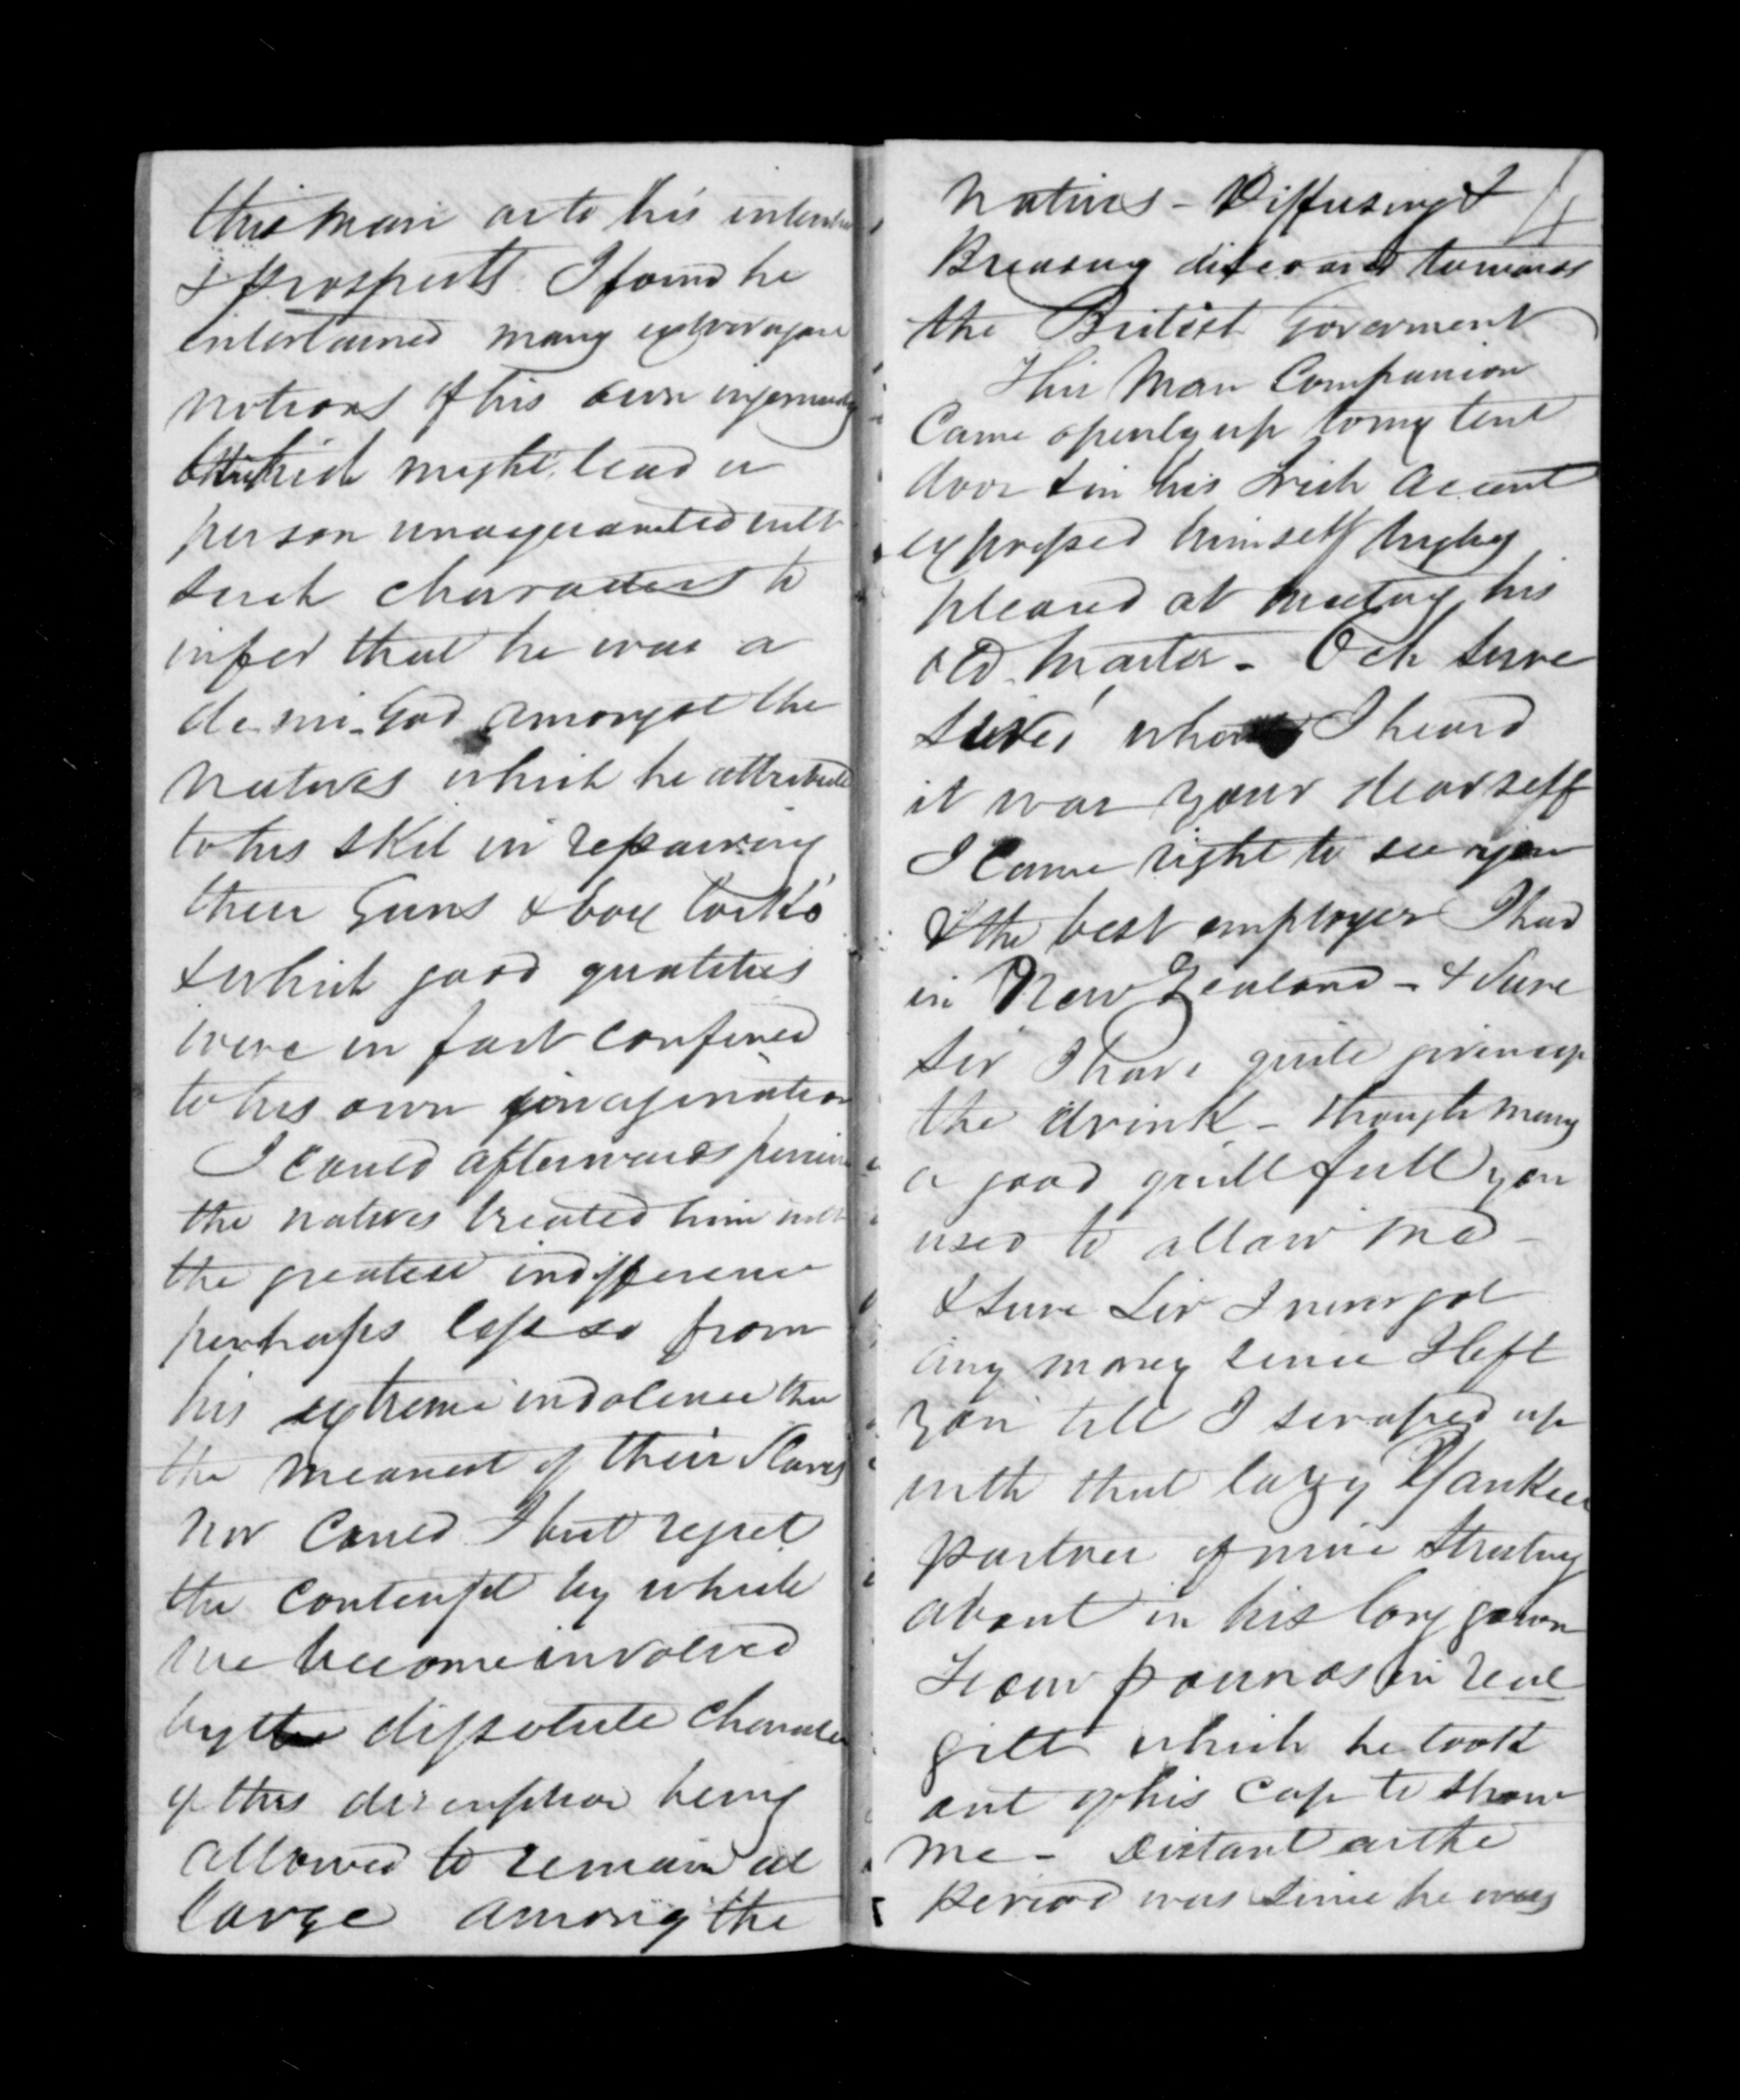 this man as to his intentions
& prospects I found he
entertained many extravagant
notions of his own ingenuity
which might lead a
person unacquainted with
such characters to
infer that he was a
demi-God amongst the
natives which he attributed
to his skil in repairing
their Guns & box locks
& which good qualities
were in fact confined
to his own imagination
I could afterwards perceive
the natives treated him with
the greatest indifference
perhaps less so from
his extreme indolence than
the meanest of their slaves
nor could I but regret
the contempt by which
we become involved
by the dissolute character
of this description being
allowed to remain at
large among the
natives - Diffusing &
4
Breading discord towards
the British Goverment
This Man Companion
Came openly up to my tent
door & in his Irish accent
expressed himself highly
pleased at meeting his
old Master - Och sure
sure, when I heard
it was your dear self
I came right to see you
& the best employer I had
in New Zealand - & sure
sir I have quite given up
the drink - though many
a good quill full you
used to allow me -
& sure Sir I never got
any money since I left
you till I scraped up
with that lazy Yankee
partner of mine Struting
about in his long gown
Four pounds in real
gilt which he took
out of his cap to show
me - Distant as the
period was since he was